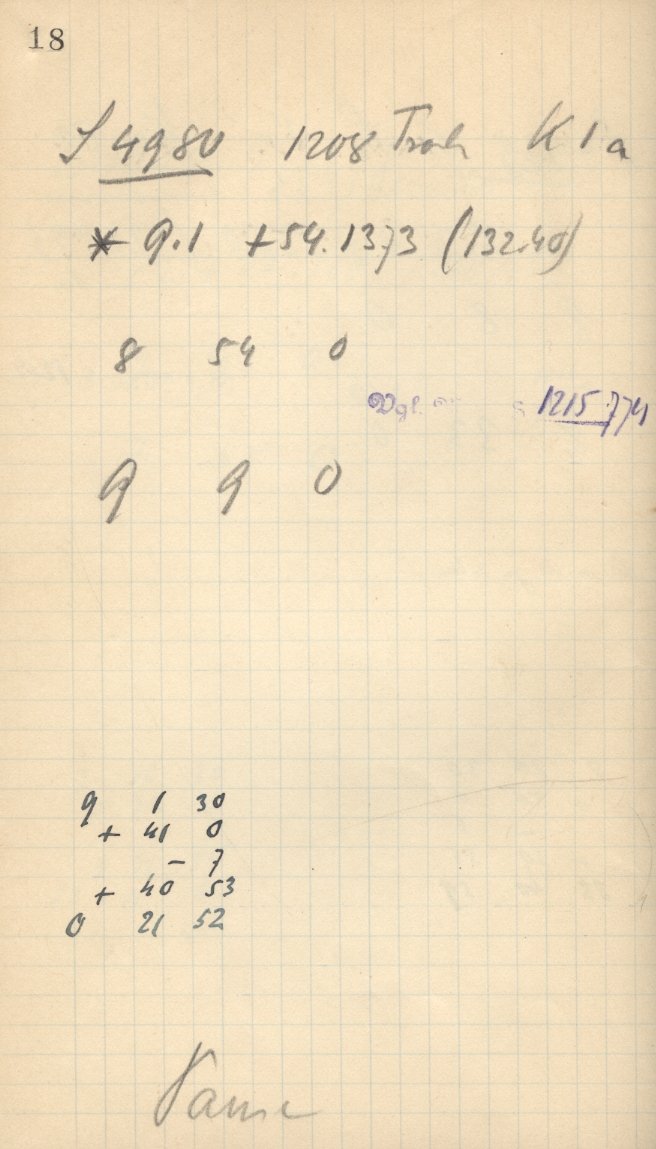 18
S 4980 1208 K 1 a
* 9.1 +54.1373 (132.40)
8 54 0
Vgl. 1215.774
9 9 0
9 1 30
+ 41 0
- 7
+ 40 53
0 21 52
Pause